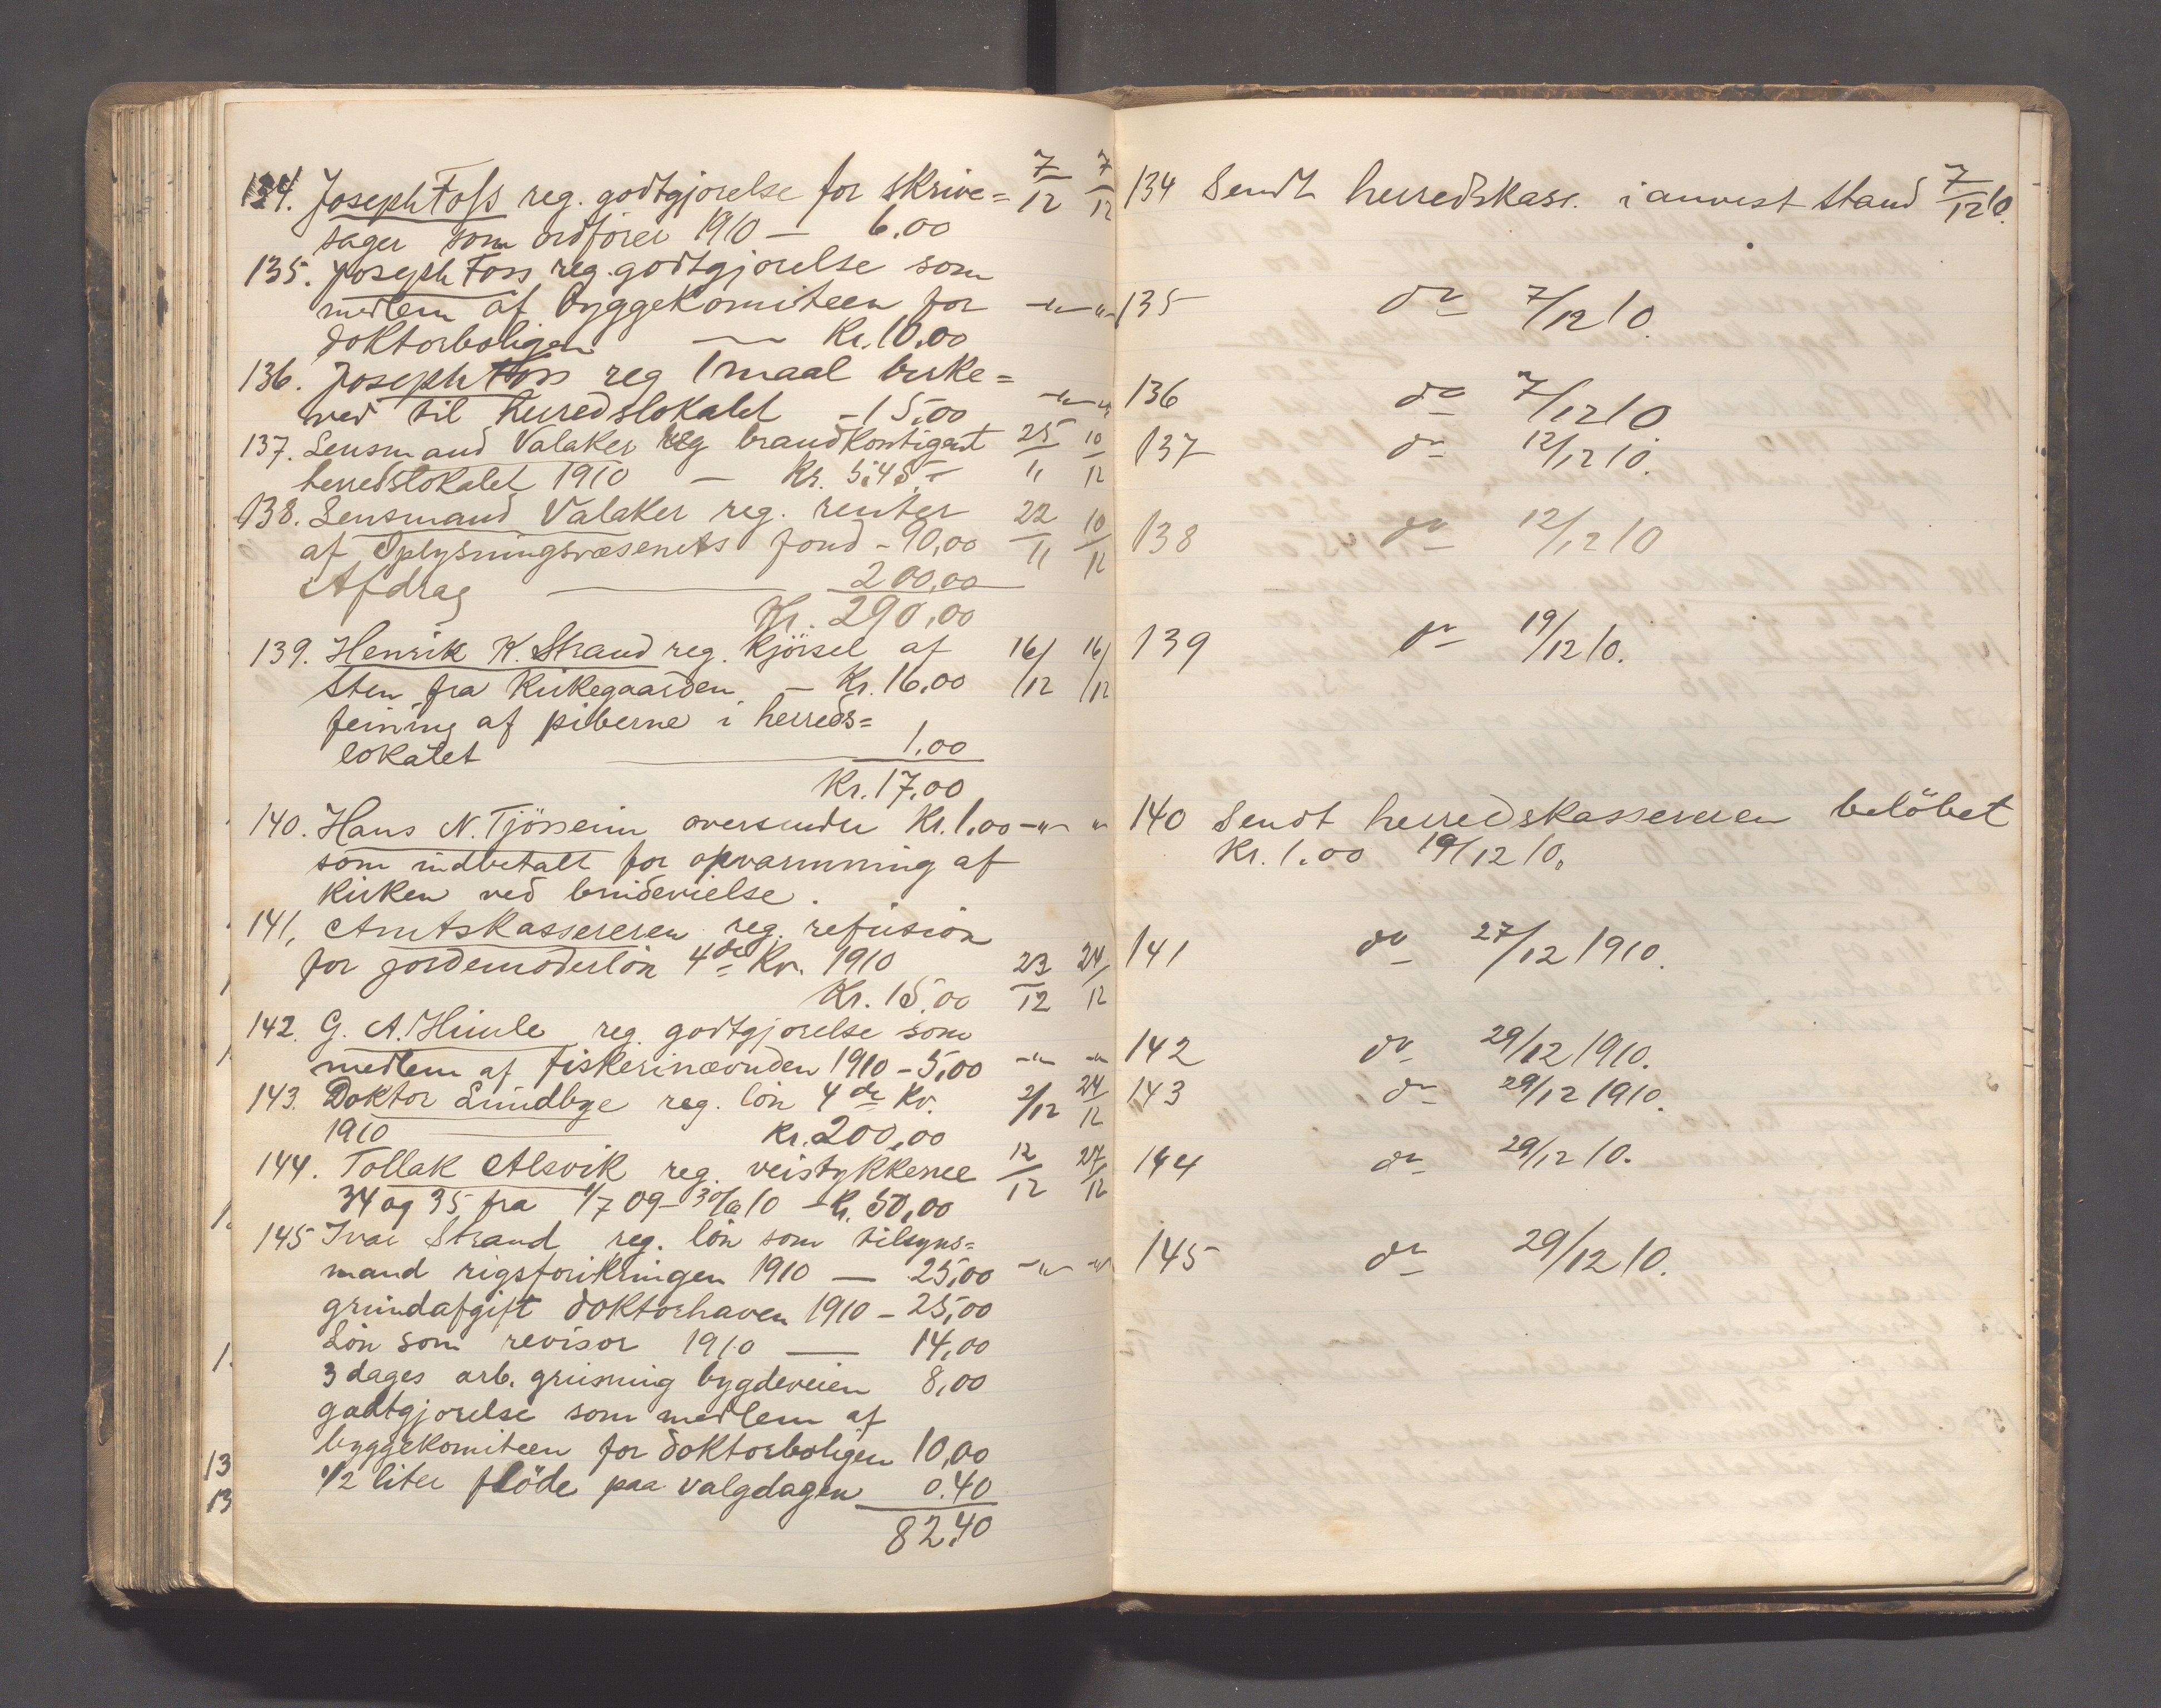 134. Joseph Foss reg. godtgjorelse for skrive= 7/12 7/12
sager som ordförer 1910 — 6.00
135. Joseph Foss reg. godtgjorelse som
medlem af byggekomiteen for -"- "
doktorboligen — Kr. 10.00
136. Joseph Foss reg 1 maal birke=
ved til herredslokalet - 15,00 -"- "
137. Lensmand Valaker reg brandkontigent 25/11 10/12
herredslokalet 1910 — Kr. 5.45
138. Lensmand Valaker reg. renter 22/11 10/12
af Oplysningsvæsenets fond - 90,00
Afdrag — 200,00
Kr. 290,00
139. Henrik K. Strand reg. kjörsel af 16/12 16/12
sten fra kirkegaarden — Kr. 16.00
feining af piberne i herreds=
lokalet — 1.00
Kr. 17.00
140. Hans N. Tjössem oversender Kr. 1.00 -"- "
som indbetalt for opvarmning af
kirken ved brudevielse.
141. Amtskassereren reg. refusion
for jordemoderlön 4de Kv. 1910 23/12 24/12
Kr. 15.00
142. G. A. Himle reg. godtgjorelse som
medlem af fiskerinævnden 1910 - 5,00 -"- -"-
143. Doktor Lundbye reg. lön 4de Kv. 2/12 24/12
1910 — Kr. 200,00
144. Tollak Alsvik reg. veistykkerne 12/12 27/12
34 og 35 fra 1/7 09 - 30/6 10 - Kr. 50,00
145 Ivar Strand reg. lön som tilsyns=
mand rigsforikringen 1910 — 25,00 -"- -"-
grundafgift doktorhaven 1910 - 25,00
Lön som revisor 1910 — 14,00
3 dages arb. grusning bygdeveien 8,00
godtgjorelse som medlem af
byggekomiteen for doktorboligen 10,00
1/2 liter flöde paa valgdagen 0.40
82.40
13
13
134 Sendt herredskass. i anvist stand 7/12 10.
135 do 7/12 10.
136 do 7/12 10
137 do 12/12 10.
138 do 12/12 10
139 do 19/12 10.
140 Sendt herredskassereren belöbet
Kr. 1.00 19/12 10.
141 do 27/12 1910.
142 do 29/12 1910.
143 do 29/12 1910.
144 do 29/12 10.
145 do 29/12 10.